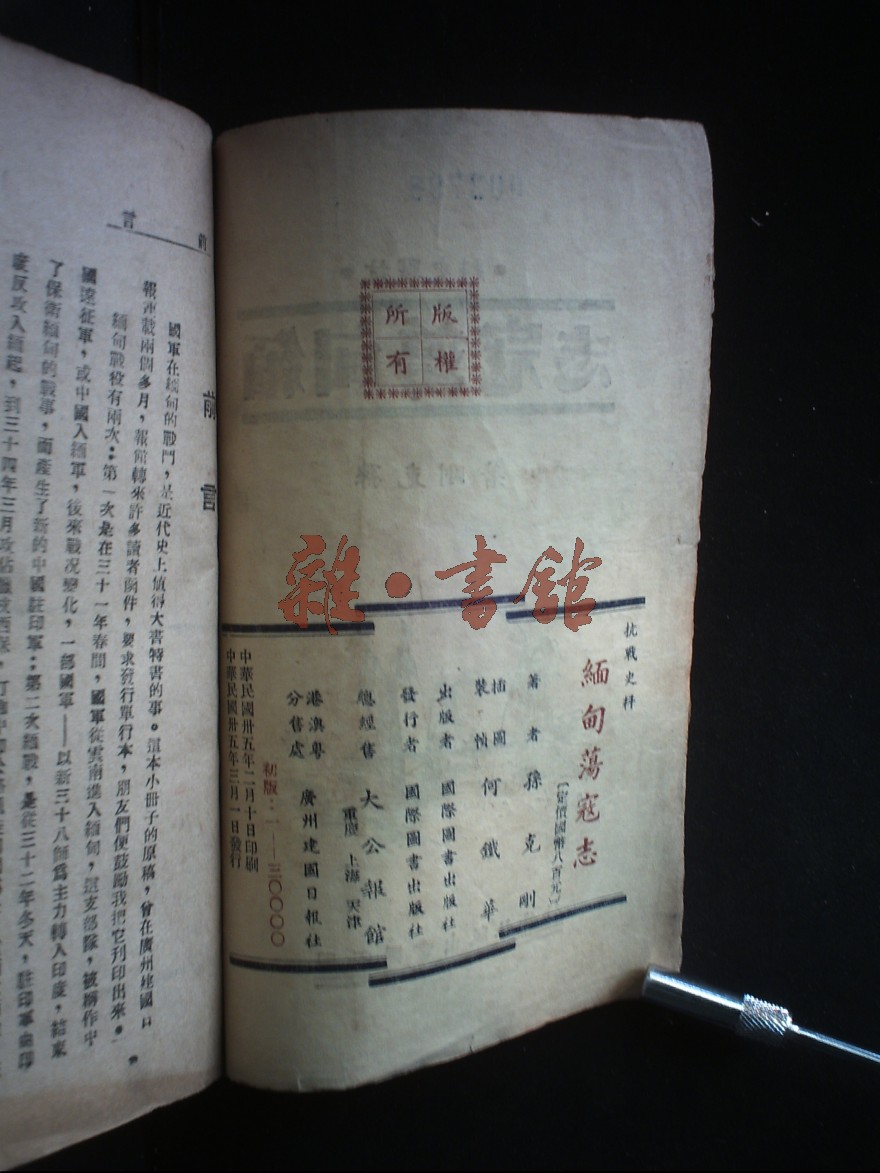 版權
所有
雜·書館
抗戰史料
緬甸蕩寇志
【定價國幣八百元】
著者 孫克剛
插圖
裝幀 何鐵華
出版者 國際圖書出版社
發行者 國際圖書出版社
總經售 大公報館
重慶 上海 天津
港澳粵
分售處 廣州建國日報社
初版:一——三〇〇〇〇
中華民國卅五年二月十日印刷
中華民國卅五年三月一日發行
前言
前言
國軍在緬甸的戰鬥,是近代史上值得大書特書的事。這本小冊子的原稿,曾在廣州建國日
報連載兩個多月,報館轉來許多讀者函件,要求發行單行本,朋友們便鼓勵我把它刊印出來。
緬甸戰役有兩次:第一次是在三十一年春間,國軍從雲南進入緬甸,這支部隊,被稱作中
國遠征軍,或中國入緬軍,後來戰况變化,一部國軍——以新三十八師爲主力轉入印度,結束
了保衛緬甸的戰事,而產生了新的中國駐印軍:第二次緬戰,是從三十二年冬天,駐印軍由印
度反攻入緬起,到三十四年三月攻佔